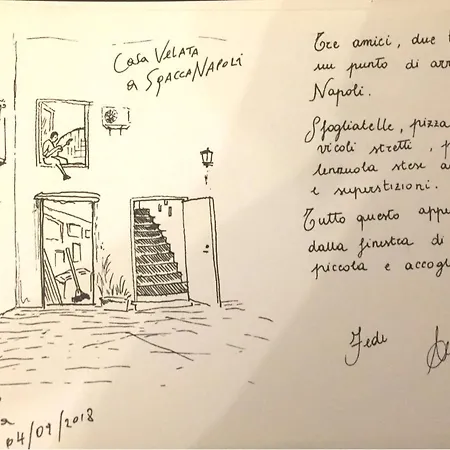 Casa Velata
a SpaccaNapoli
Tre amici, due
un punto di
Napoli.
Sfogliatelle, pizza
vicoli stretti,
lenzuola stese
e superstizioni.
Tutto questo
dalla finestra di
piccola e
Fede
04/09/2018